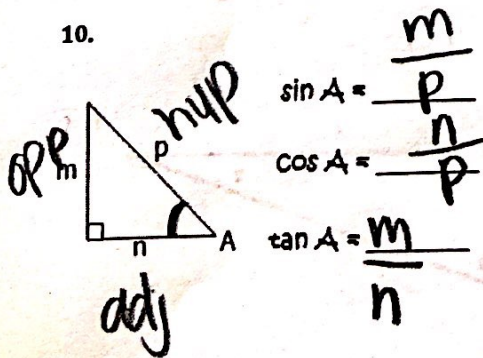 10.
opp
m
p
hyp
n
A
adj
sin A = m/p
cos A = n/p
tan A = m/n